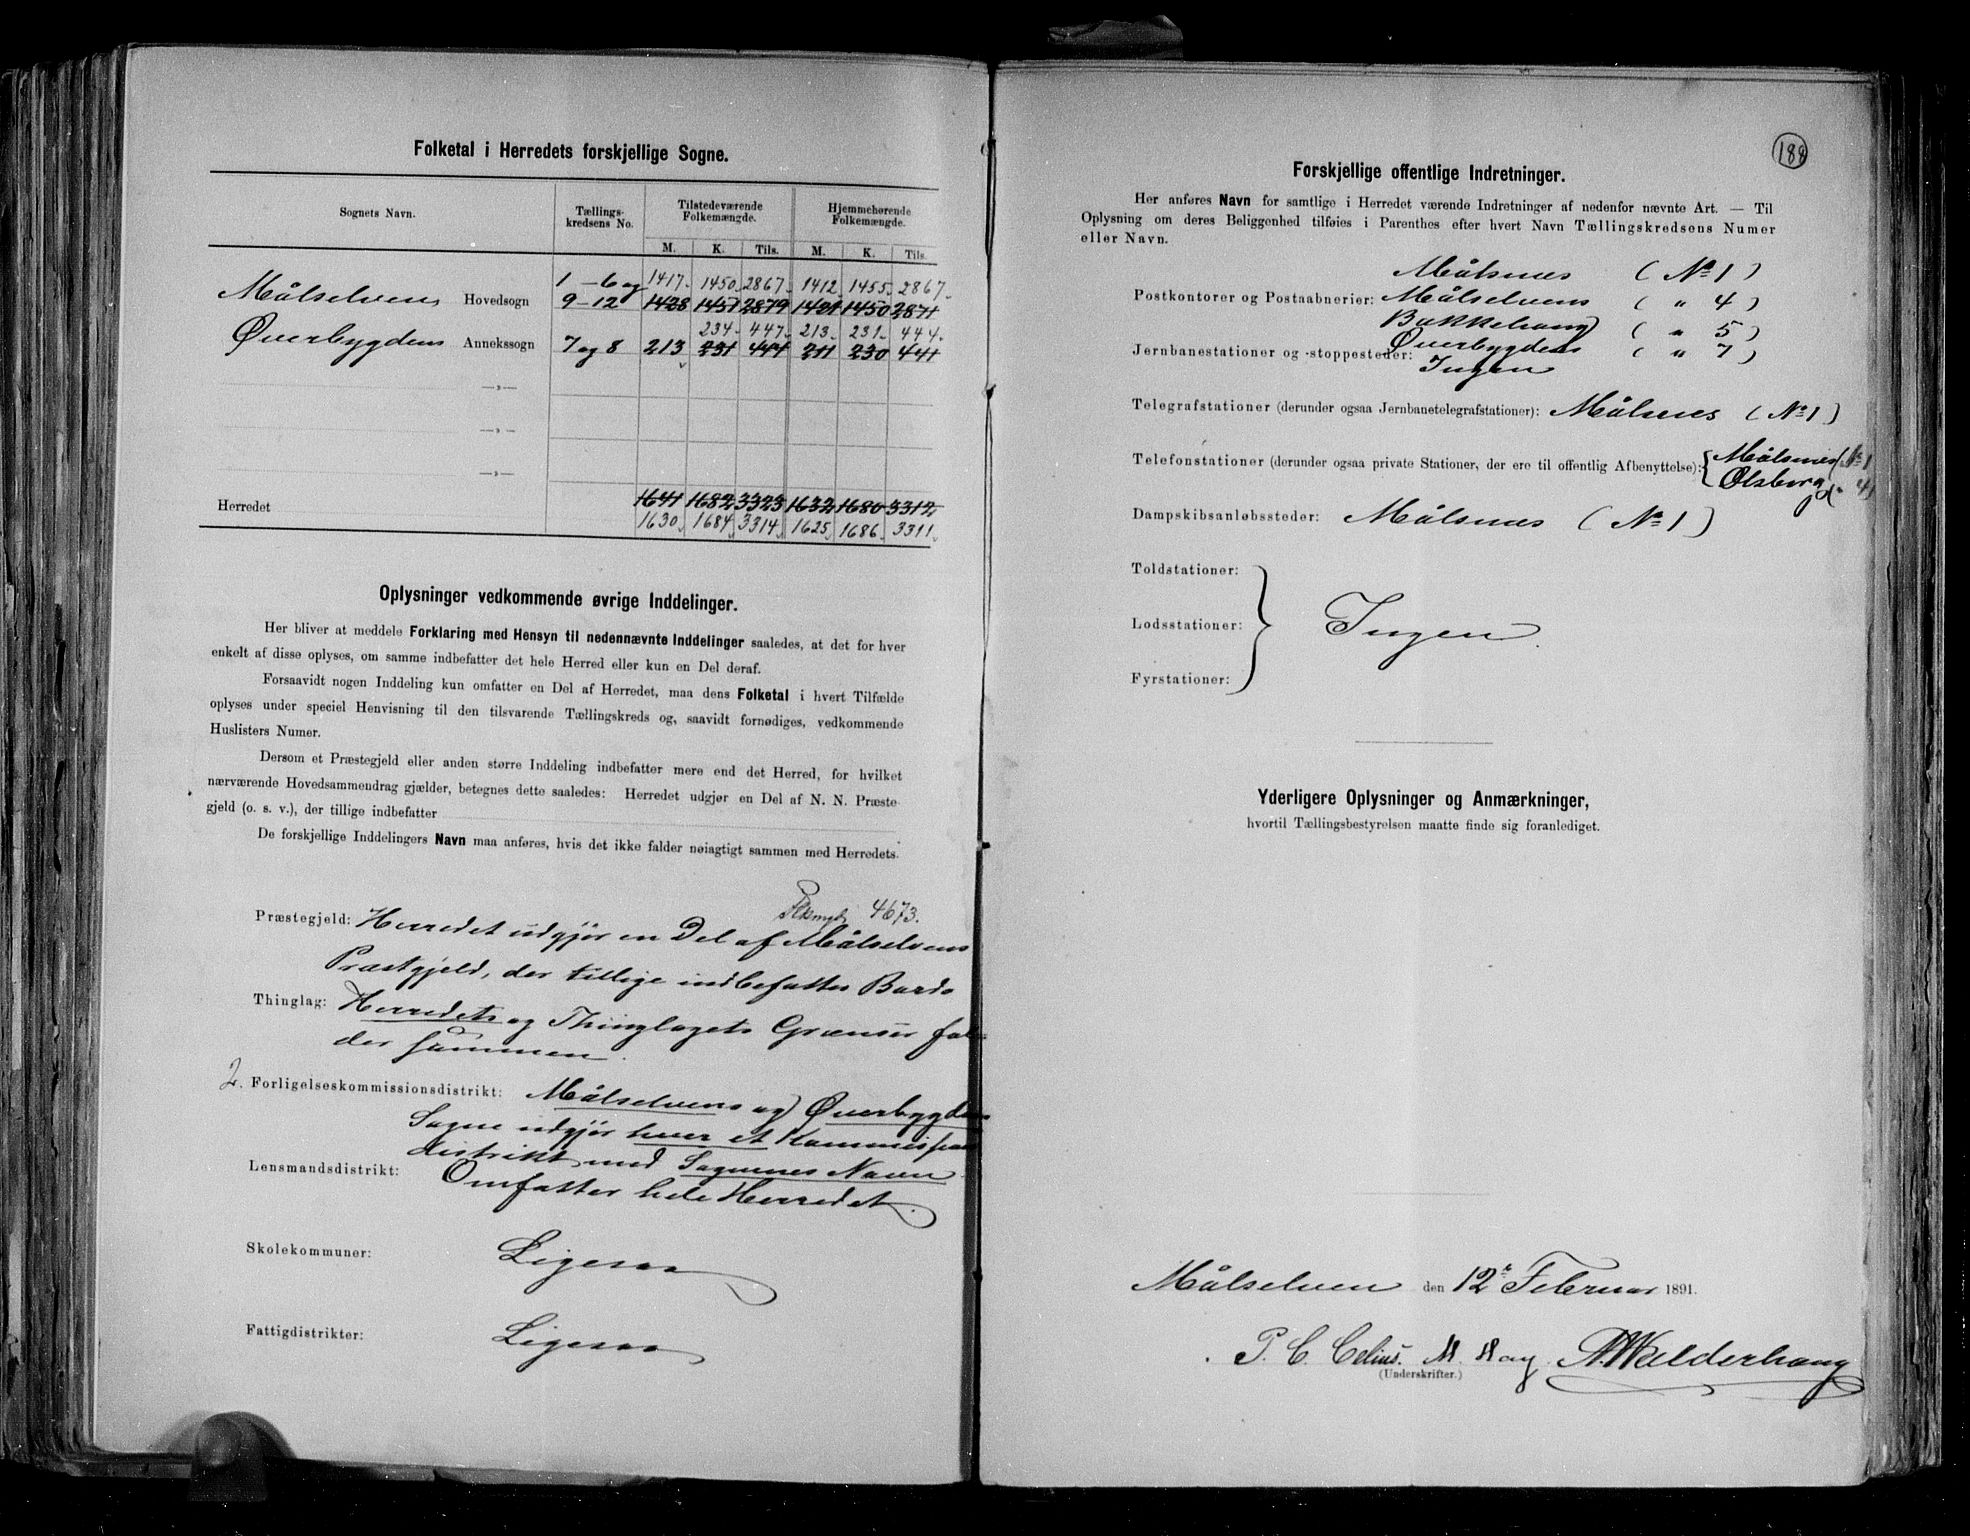 Folketal i Herredets forskjellige Sogne.
Sognets Navn. Tællings- kredsens No. Tilstedeværende Folkemængde. Hjemmehørende Folkemængde.
M. K. Tils. M. K. Tils.
1-6 og 1417 1450 2867 1412 1455 2867
Målselvens Hovedsogn 9-12 1428 1451 2879 1421 1450 2871
234 447 213 231 444
Øverbygdens Annekssogn 7 og 8 213 231 444 211 230 441
—»—
—»—
—»—
Herredet 1641 1682 3323 1632 1680 3312
1630 1684 3314 1625 1686 3311
Oplysninger vedkommende øvrige Inddelinger.
Her bliver at meddele Forklaring med Hensyn til nedennævnte Inddelinger saaledes, at det for hver
enkelt af disse oplyses, om samme indbefatter det hele Herred eller kun en Del deraf.
Forsaavidt nogen Inddeling kun omfatter en Del af Herredet, maa dens Folketal i hvert Tilfælde
oplyses under speciel Henvisning til den tilsvarende Tællingskreds og, saavidt fornødiges, vedkommende
Huslisters Numer.
Dersom et Præstegjeld eller anden større Inddeling indbefatter mere end det Herred, for hvilket
nærværende Hovedsammendrag gjælder, betegnes dette saaledes: Herredet udgjør en Del af N. N. Præste-
gjeld (o. s. v.), der tillige indbefatter
De forskjellige Inddelingers Navn maa anføres, hvis det ikke falder nøiagtigt sammen med Herredets.
4673.
Præstegjeld: Herredet udgjør en Del af Målselvens
Præstgjeld, der tillige indbefatter Bardo
Thinglag: Herredets og Thinglagets Grænser fal-
der sammen.
2. Forligelseskommissionsdistrikt: Målselvens og Øverbygdens
Sogne udgjør hver et Kommissions
distrikt med Sognenes Navn
Lensmandsdistrikt: Omfatter hele Herredet.
Skolekommuner: Ligesaa
Fattigdistrikter: Ligesaa
188
Forskjellige offentlige Indretninger.
Her anføres Navn for samtlige i Herredet værende Indretninger af nedenfor nævnte Art. — Til
Oplysning om deres Beliggenhed tilføies i Parenthes efter hvert Navn Tællingskredsens Numer
eller Navn.
Målsnes (No 1)
Postkontorer og Postaabnerier: Målselvens (" 4)
Bakkehaug (" 5)
Øverbygdens (" 7)
Jernbanestationer og -stoppesteder: Ingen
Telegrafstationer (derunder ogsaa Jernbanetelegrafstationer): Målsnes (No 1)
Telefonstationer (derunder ogsaa private Stationer, der ere til offentlig Afbenyttelse): { Målsnes (No 1
Olsborg (" 4)
Dampskibsanløbssteder: Målsnes (No 1)
Toldstationer:
Lodsstationer: } Ingen.
Fyrstationer:
Yderligere Oplysninger og Anmærkninger,
hvortil Tællingsbestyrelsen maatte finde sig foranlediget.
Målselven den 12te Februar 1891.
P. C. Celius. M. Hay.
(Underskrifter.)